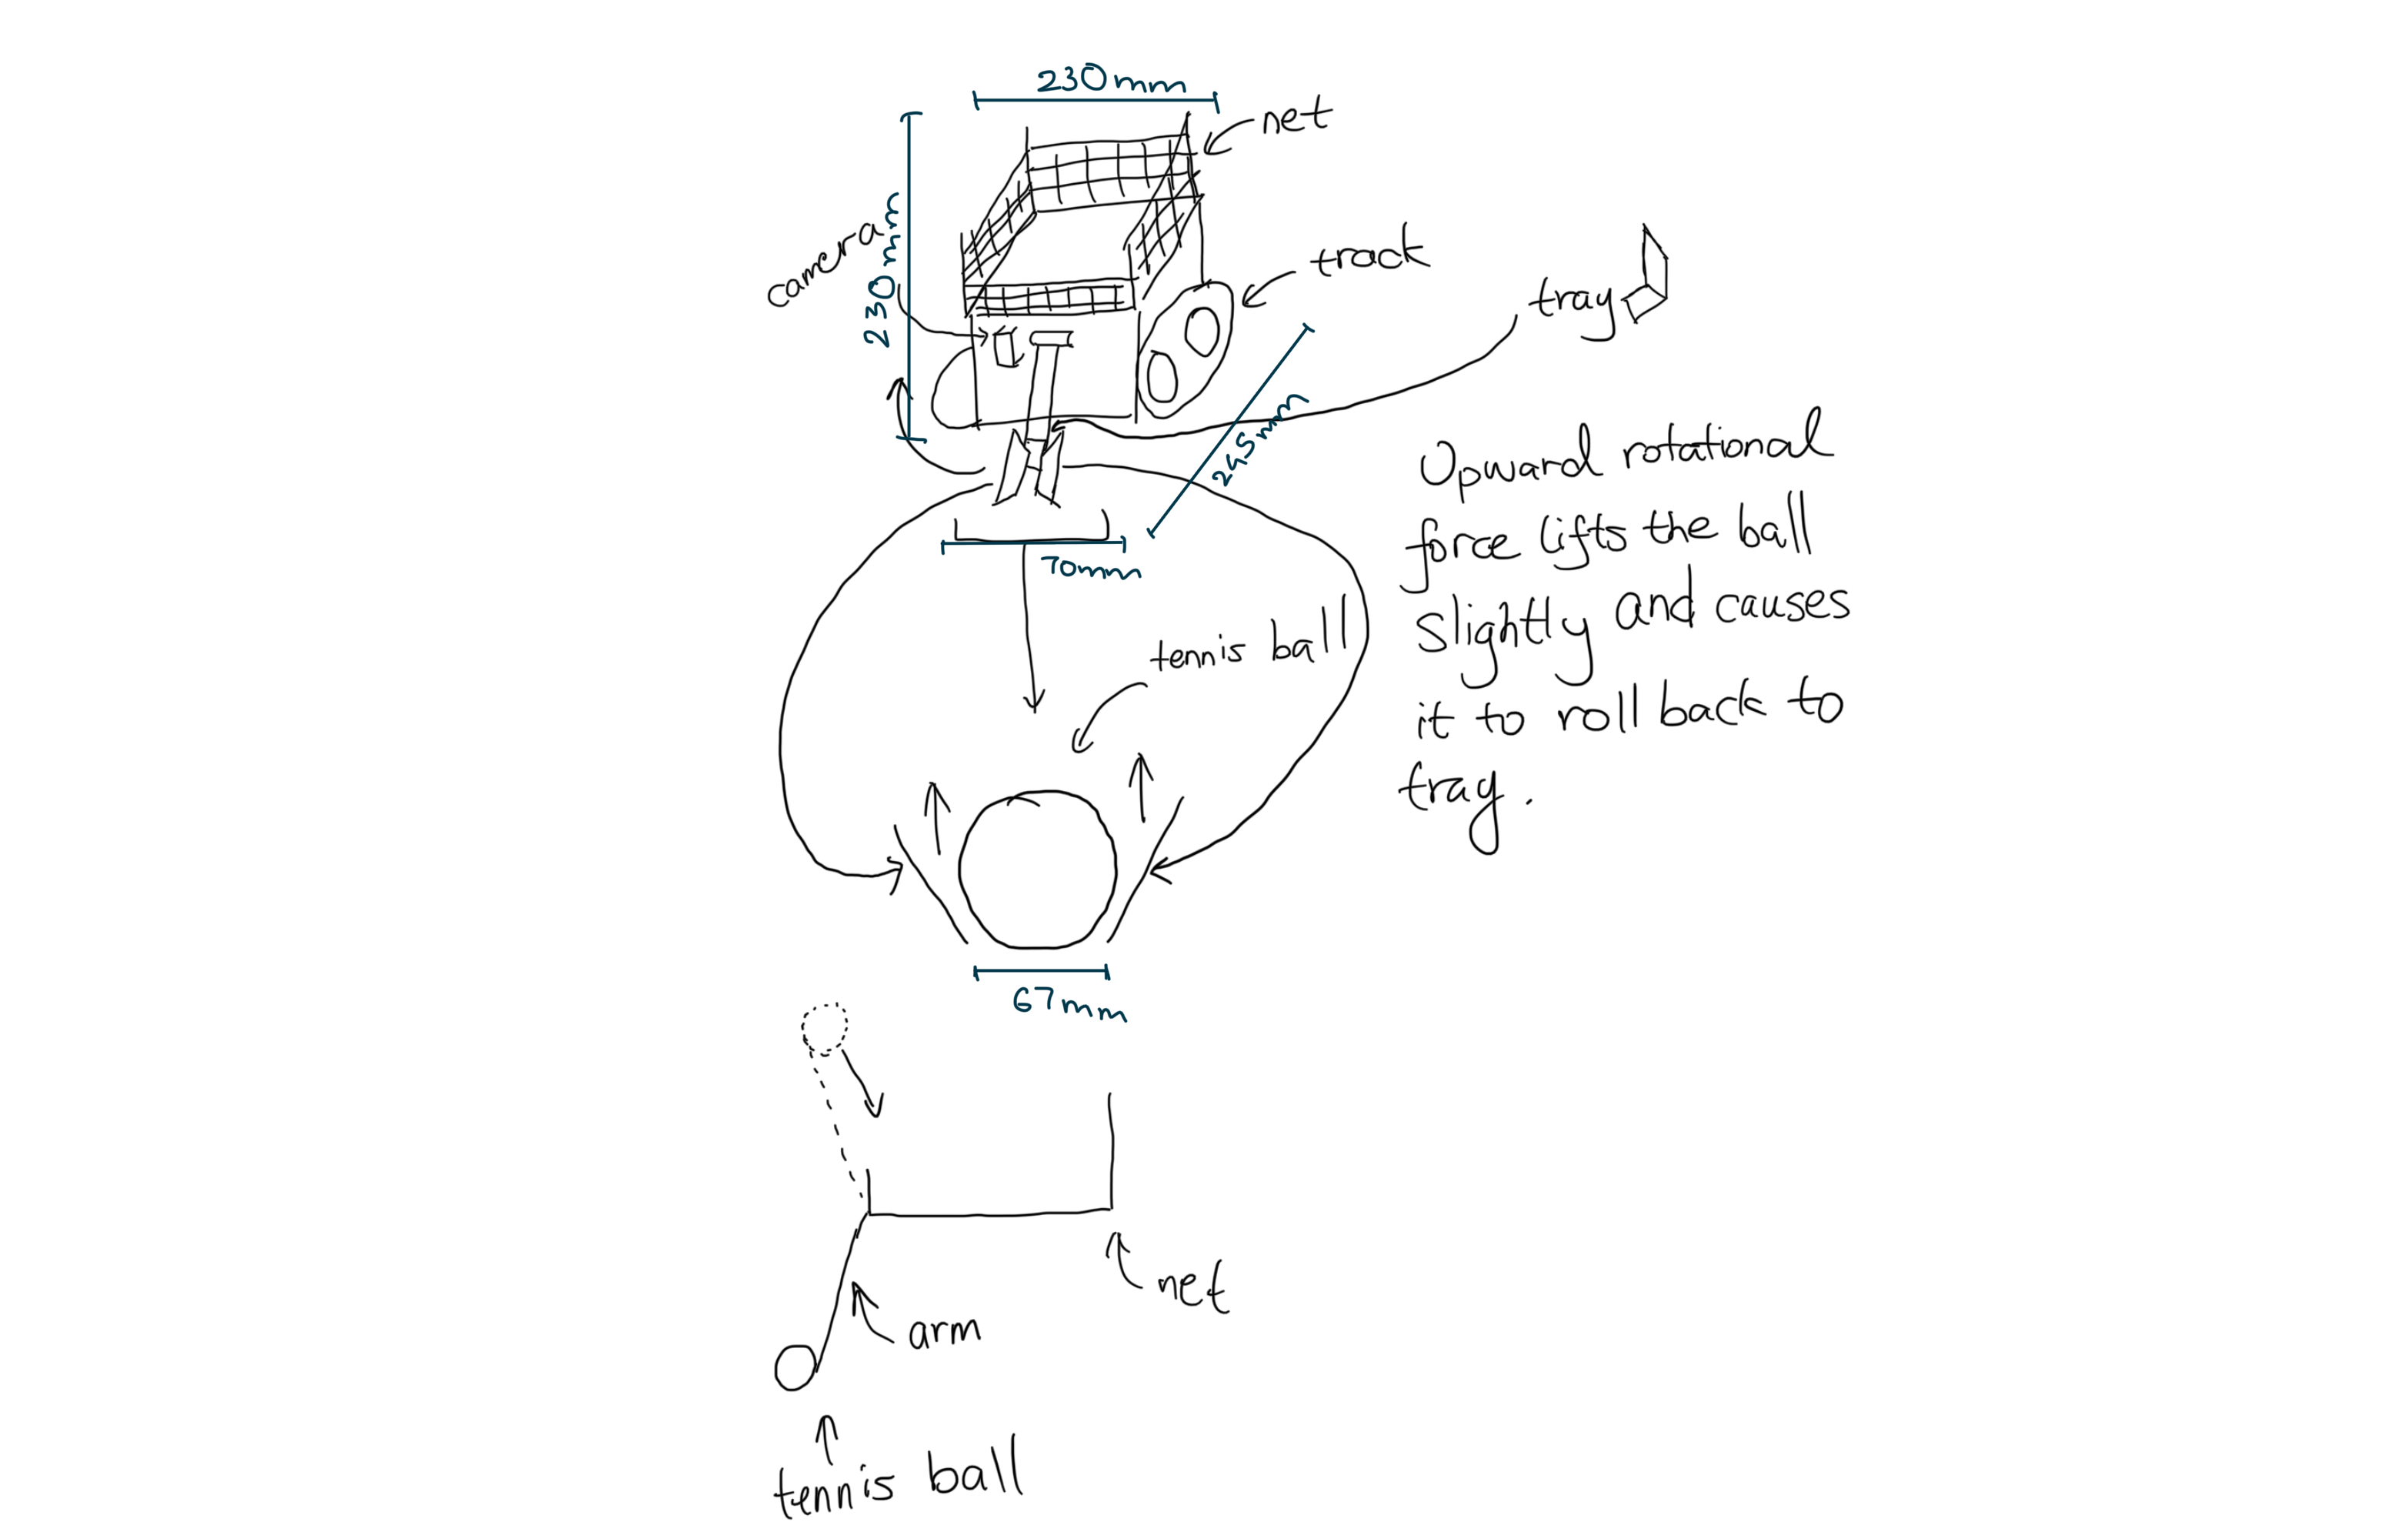 230mm
net
camera
230mm
track
tray
245mm
70mm
Upward rotational
force lifts the ball
slightly and causes
it to roll back to
tray.
tennis ball
67mm
net
arm
tennis ball